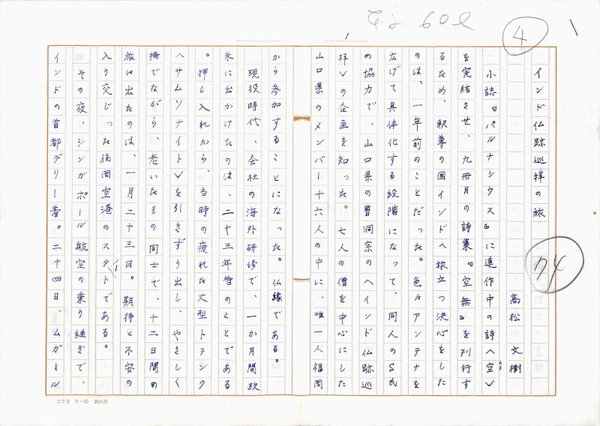 1
④
インド仏跡巡拝の旅
74
高松 文樹
小誌『パルナシウス』に連作中の詩〈空〉
を完結させ、九冊目の詩集『空無』を刊行す
るため、釈尊の国インドへ旅立つ決心をした
のは、一年前のことだった。色々アンテナを
広げて具体化する段階になって、同人のS氏
の協力で、山口県の曹洞宗の〈インド仏跡巡
拝〉の企画を知った。七人の僧を中心にした
山口県のメンバー十六人の中に、唯一人福岡
から参加することになった。仏縁である。
現役時代、会社の海外研修で、一か月間欧
米に出かけたのは、二十三年昔のことである
。押し入れから、当時の疲れた大型トランク
〈サムソナイト〉を引きずり出し、やさしく
撫でながら、老いたもの同士で、十二日間の
旅に出たのは、一月二十三日。期待と不安の
入り交じった福岡空港のスタートである。
その夜、シンガポール航空の乗り継ぎで、
インドの首都デリー着。二十四日、ムガール
コクヨ ケ-20 20×20